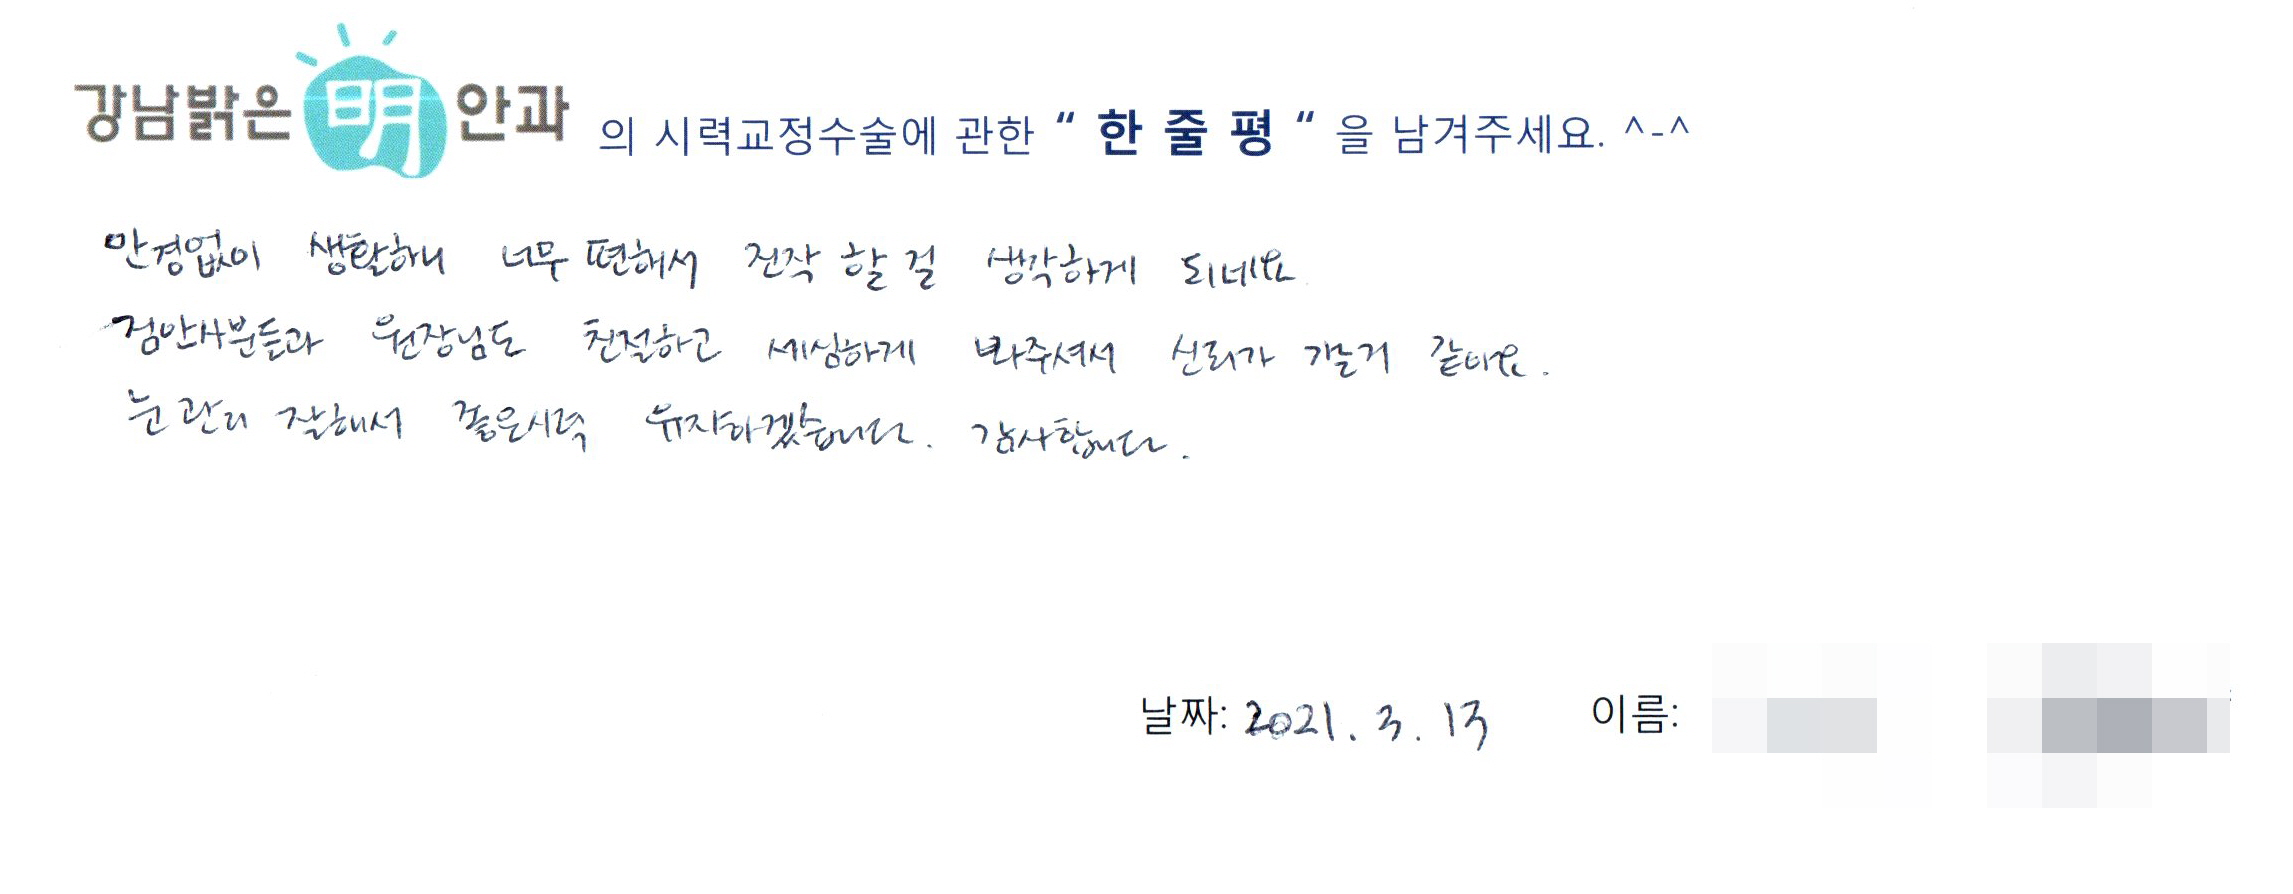 강남밝은明안과 의 시력교정수술에 관한 “ 한 줄 평 “ 을 남겨주세요. ^-^
안경없이 생활하니 너무 편해서 진작 할 걸 생각하게 되네요
검안사분들과 원장님도 친절하고 세심하게 봐주셔서 신뢰가 가는거 같아요.
눈 관리 잘해서 좋은시력 유지하겠습니다. 감사합니다.
날짜: 2021. 3. 13 이름: